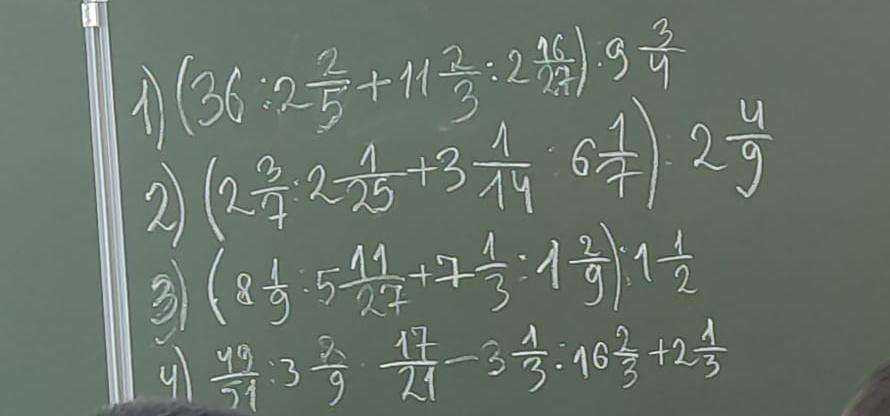 1) (36 : 2 2/5 + 11 2/3 : 2 16/27) · 9 3/4
2) (2 3/7 : 2 1/25 + 3 1/14 : 6 1/7) · 2 4/9
3) (8 1/9 : 5 11/27 + 7 1/3 : 1 2/9) : 1 1/2
4) 49/51 : 3 2/9 · 17/21 - 3 1/3 : 16 2/3 + 2 1/3